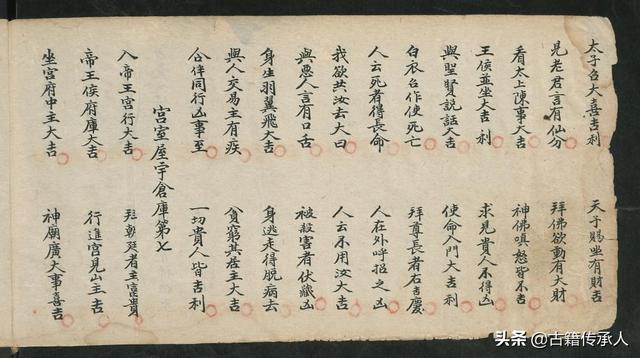 太子召大喜吉利 天子賜坐有財吉
見老君言有仙分 拜佛欲動有大財
看太上陳事大吉 神佛嗔怒皆不吉
王侯並坐大吉利 求見貴人不得凶
與聖賢說話大吉 使命入門大吉利
白衣召作使死亡 拜尊長者有吉慶
人云死者得長命 人在外呼招之凶
我欲共汝去大凶 人云不用汝大吉
與惡人言有口舌 被殺害者伏藏凶
身生羽翼飛大吉 身逃走得脫病去
與人交易主有疾 貧窮共居主大吉
合伴同行凶事至 一切貴人皆吉利
宮室屋宇倉庫第七
入帝王宮行大吉 朝廷者主富貴
帝王侯府庫大吉 行進宮見山主吉
坐宮府中主大吉 神廟廣大事喜吉
头条 @古籍传承人